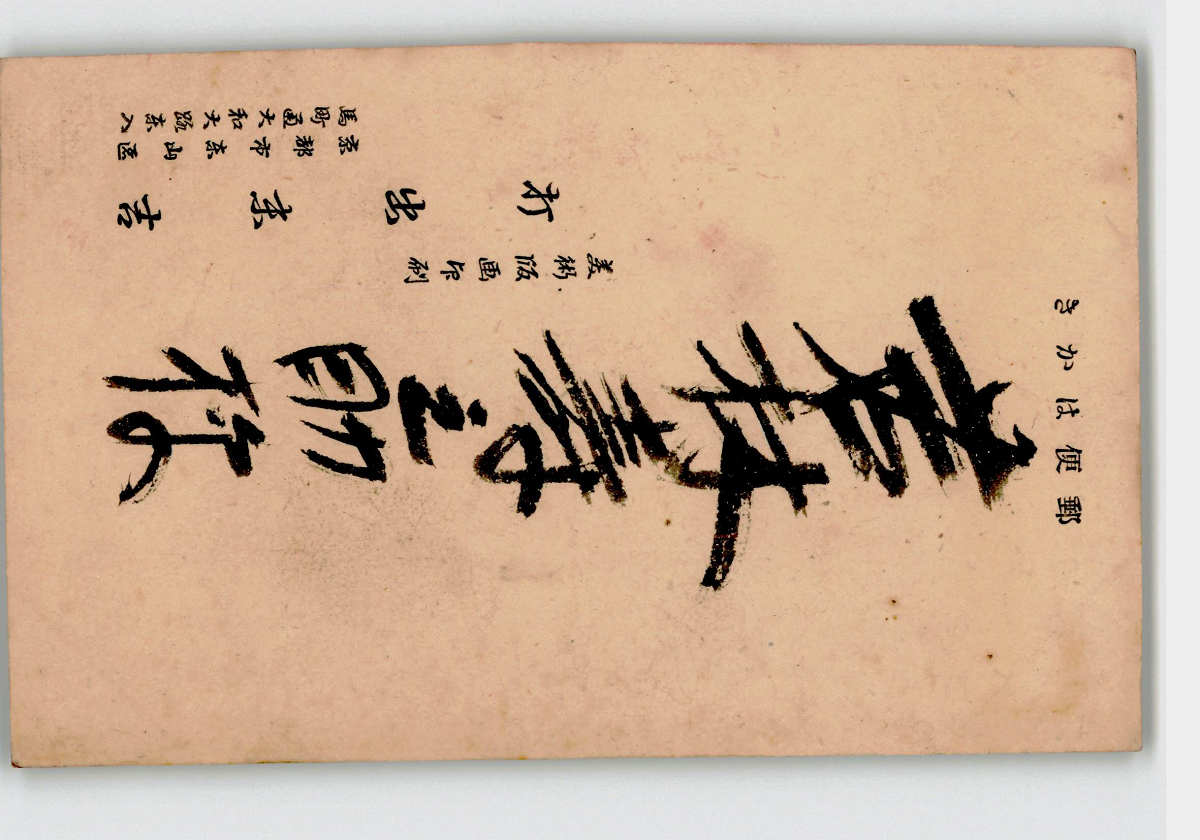 郵便はかき
寿之助様
美術版画印刷
打出 吉
京都市東山区
馬町通大和大路東入